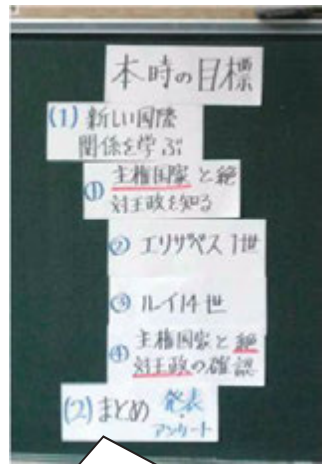 本時の目標
(1) 新しい国際
関係を学ぶ
① 主権国家と絶
対王政を知る
② エリザベス1世
③ ルイ14世
④ 主権国家と絶
対王政の確認
(2) まとめ 発表
・
アンケート